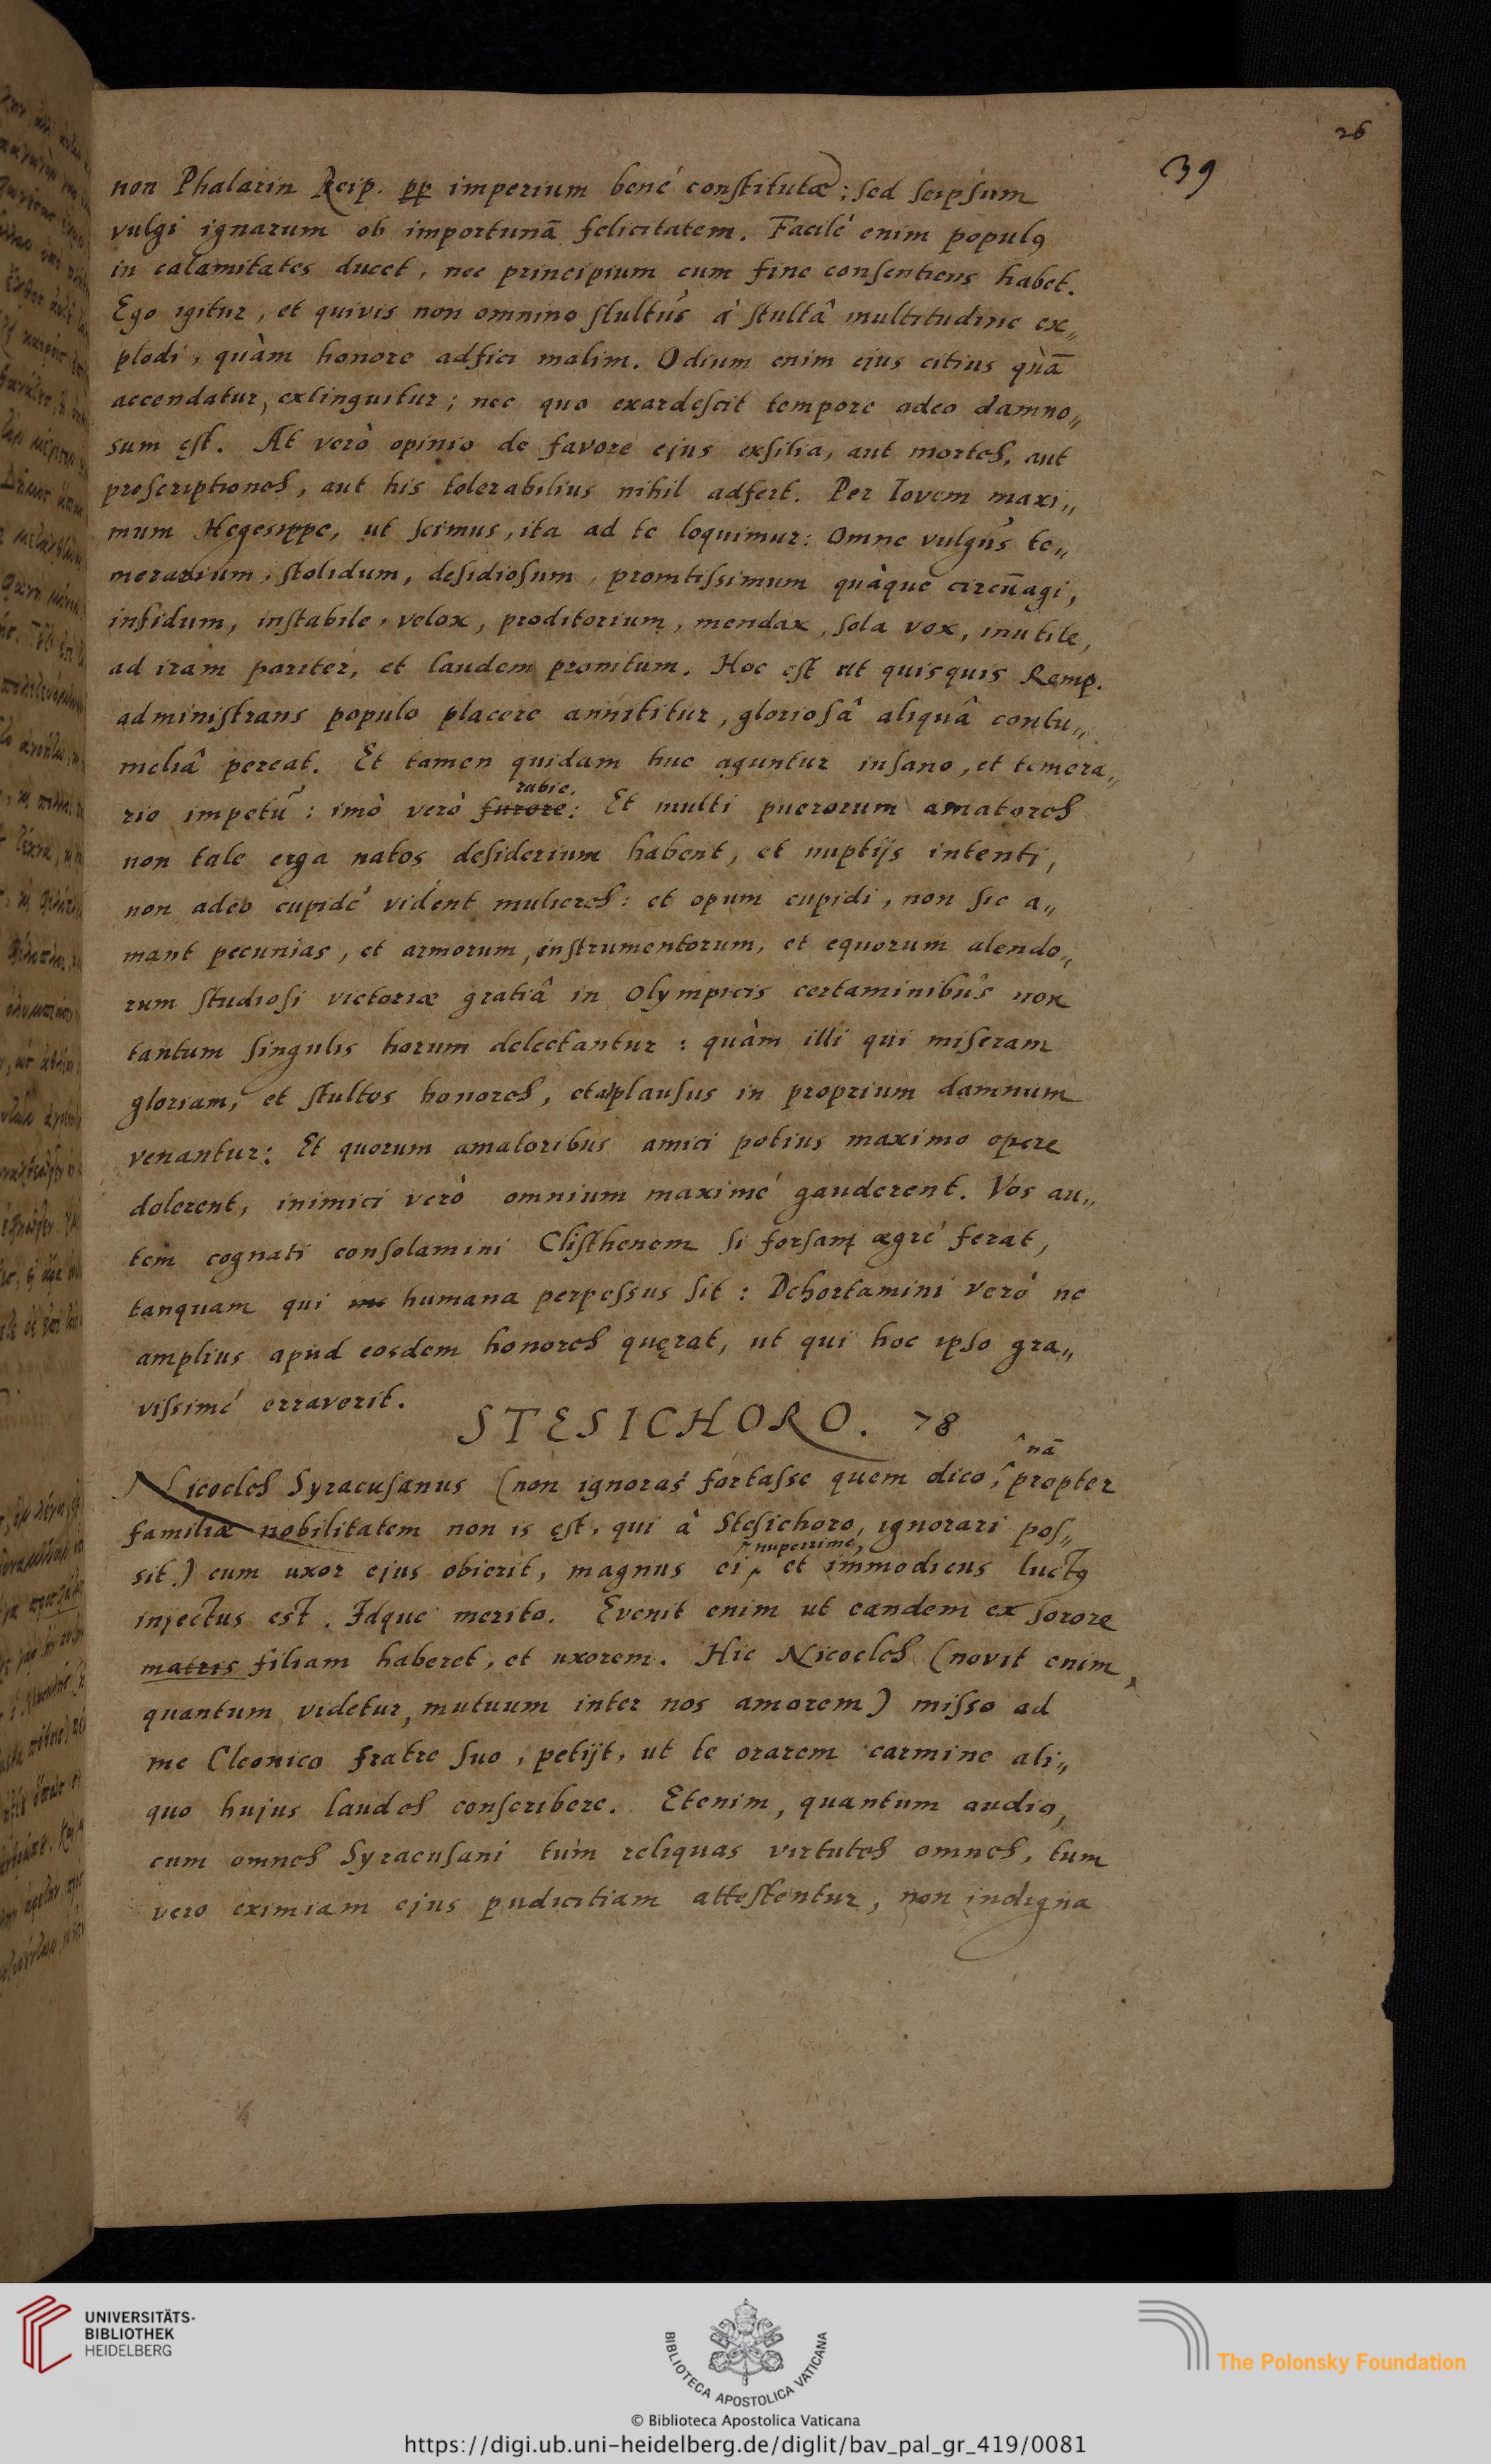 26
39
non Phalarin Reip. pp imperium bené constitutæ: sed seipsum
vulgi ignarum ob importunā felicitatem. Facilé enim populꝯ
in calamitates ducet, nec principium cum fine consentiens habet.
Ego igitur, et quivis non omnino stultus à stultâ multitudine ex„
plodi, quàm honore adfici malim. Odium enim ejus citius quā̀
accendatur, extinguitur; nec quo exardescit tempore adeo damno„
sum est. At verò opinio de favore ejus exsilia, aut mortes, aut
proscriptiones, aut his tolerabilius nihil adfert. Per Iovem maxi„
mum Hegesippe, ut scimus, ita ad te loquimur: Omne vulgus te„
merarium, stolidum, desidiosum, promtissimum quàque circūagi,
infidum, instabile, velox, proditorium, mendax, sola vox, inutile,
ad iram pariter, et laudem promtum. Hoc est ut quisquis Remp.
administrans populo placere annititur, gloriosâ aliquâ contu„
meliâ pereat. Et tamen quidam huc aguntur insano, et temera„
rio impetu: imò verò furore: rabie. Et multi puerorum amatores
non tale erga natos desiderium habent, et nuptijs intenti,
non adeo cupidé vident mulieres: et opum cupidi, non sic a„
mant pecunias, et armorum, instrumentorum, et equorum alendo„
rum studiosi victoriæ gratiâ in Olympicis certaminibus non
tantum singulis horum delectantur: quàm illi qui miseram
gloriam, et stultos honores, et plausus in proprium damnum
venantur: Et quorum amatoribus amici potius maximo opere
dolerent, inimici verò omnium maximé gauderent. Vos au„
tem cognati consolamini Clisthenem si forsam ægré ferat,
tanquam qui humana perpessus sit: Dehortamini verò ne
amplius apud eosdem honores quęrat, ut qui hoc ipso gra„
vissimé erraverit.
STESICHORO. 78
Nicocles Syracusanus (non ignoras fortasse quem dico, nā propter
familiæ nobilitatem non is est, qui à Stesichoro, ignorari pos„
sit.) cum uxor ejus obierit, magnus ei nuperrime, et immodicus luctꝯ
injectus est. Idque merito. Evenit enim ut eandem ex sorore
matris filiam haberet, et uxorem. Hic Nicocles (novit enim,
quantum videtur, mutuum inter nos amorem) misso ad
me Cleonico fratre suo, petijt, ut te orarem carmine ali„
quo hujus laudes conscribere. Etenim, quantum audio,
cum omnes Syracusani tùm reliquas virtutes omnes, tum
vero eximiam ejus pudicitiam attestentur, non indigna
UNIVERSITÄTS-
BIBLIOTHEK
HEIDELBERG
BIBLIOTECA APOSTOLICA VATICANA
© Biblioteca Apostolica Vaticana
The Polonsky Foundation
https://digi.ub.uni-heidelberg.de/diglit/bav_pal_gr_419/0081